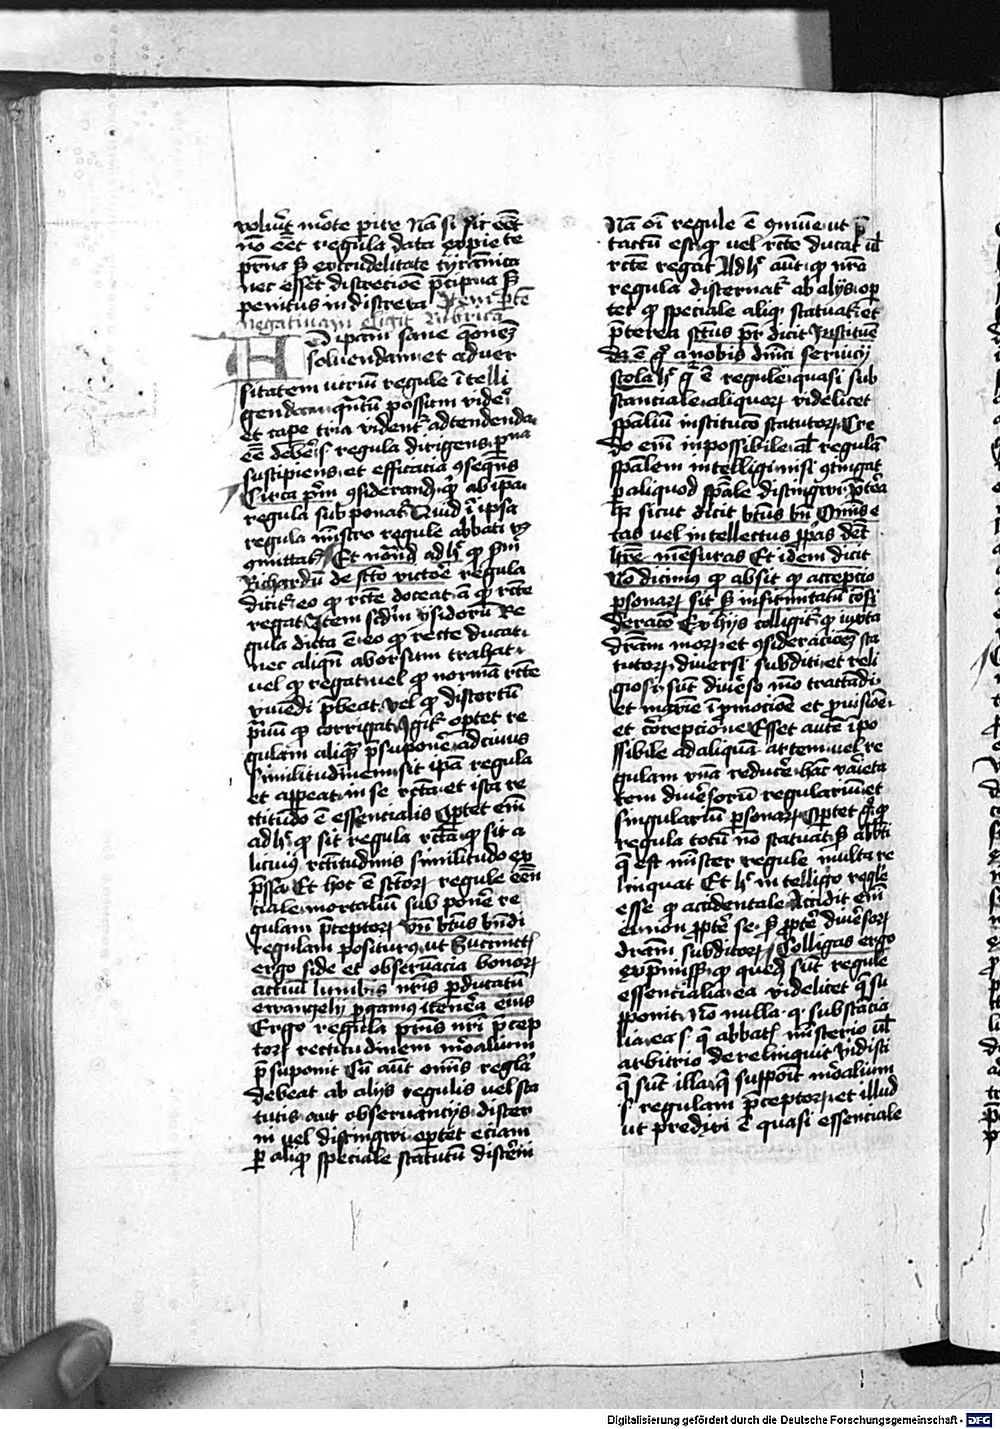 voluīt mōte pire Nā si sic eēt
nō eēt regula data ex pietate
pr̄na sꝫ ex crudelitate tyrānica
nec esset discrecioē p̄cipua sꝫ
penitus indiscreta Item p̄tē
negatiuam eligit Rubrica
Ad ipam sane q̄onem
soluendam et aduer
sitatem utrum regule ītelli
gendam q̄ntū possum vide
et cape tria vident᷑ adtendenda
eē debes regula dirigens
suscipiens et efficacia ꝯseqn̄s
Circa pm̄ ꝯsiderand ab ipa
regula sub ponat᷑ Quid ī ipsa
regula mīstro regule abbati
ꝯmittat᷑ Et notand ad hͦ ꝙ scdm
Richardū de scto victore regula
dicit᷑ eo ꝙ rcte doceat ꝙ rcte
regat Item scdm ysidorū Re
gula dicta ē eo ꝙ recte ducat
nec aliqn̄ aborsum trahat
uel ꝙ regat uel ꝙ normā rcte
viuēdi p̄beat vel ꝙ distortū
prauū ꝙ corrigat Igit᷑ oportet re
gulam aliquā p̄suponē ad cuius
similitudinem sit ipa regula
et appeat in se rcta et ista re
ctitudo ē essencialis Oportet em̄
ad hͦ ꝙ sit regula rcta ꝙ sit a
licuius rctitudinis similitudo ex
p̄ssa Et hoc ē sctoꝝ regule eēn
ciale mortaliū sub ponē re
gulam p̄ceptoꝝ Vn̄ btūs bn̄di
regulam positurus ait Succincti
ergo fide et obseruācia bonoꝝ
actuū lumbis nr̄is p ducatū
ewangelij pgamus itinera eius
Ergo regula pr̄is nr̄i p̄cep
toꝝ rectitudinem mōalium
p̄suponit Cū aut omīs regla
debeat ab alijs regulis vel sta
tutis aut obseruancijs discer
ni vel distingwi oportet eciam
ꝑ aliqd speciale statutū discerni
Nā oī regule ē ꝯmūe ut p̄
tactū est ꝙ vel rcte ducat ul
rcte regat Ad hͦ aūt ꝙ nr̄a
regula discernat᷑ ab alijs opor
tet ꝙ speciale aliqd statuat et
p̄terea sctus pr̄ dicit Instituē
da ē gͦ a nobis dn̄ici seruicij
scola hͦ gͦ ē regule quasi sub
stanciale aliquoꝝ videlicet
spaliū institucō statutoꝝ Cre
do em̄ inpossibile al regulā
spalem intelligi nisi ꝯtingat
p aliquod spale distingwi p̄terea
hͦ sicut dicit btūs bn̄ Omīs e
tas uel intellectus ꝓpas debet
hr̄e mesuras Et idem dicit
Nō dicimus ꝙ absit ꝙ accepcio
psonaꝝ sit sꝫ infirmitatū cōsi
deracō Ex hijs colligit᷑ ꝙ iuxta
dr̄am moꝝ et ꝯsideracionē sta
tutoꝝ diuersi subditi et reli
giosi sūt diuerso mō tractadi
et maxie ī pmocioē et puisiōe
et correpcione Esset autē īpo
ssibile ad aliquā artem uel re
gulam vnā reducē hāc varieta
tem diuersorū regularium et
singularium psonaꝝ Oportet gͦ ꝙ
regula totū nō statuat sꝫ abbti
q̄ est mīster regule multa re
linquat Et hͦ intelligo regle
esse ꝙ accidentale Accidit em̄
ei non ꝓpt̄ se sꝫ ꝓpt̄ diuersoꝝ
dr̄am subditoꝝ Colligas ergo
ex p̄missis ꝙ quedā sūt regule
essencialia ea videlicet q̄ su
pponit Nō nulla q̄ substācia
lia ea s q̄ abbatis mīsterio ul
arbitrio derelinquit Vidisti
q̄ sūt illa q̄ suppōit mōalium
s regulam p̄ceptoꝝ et illud
ut predixi ē quasi essenciale
Digitalisierung gefördert durch die Deutsche Forschungsgemeinschaft - DFG